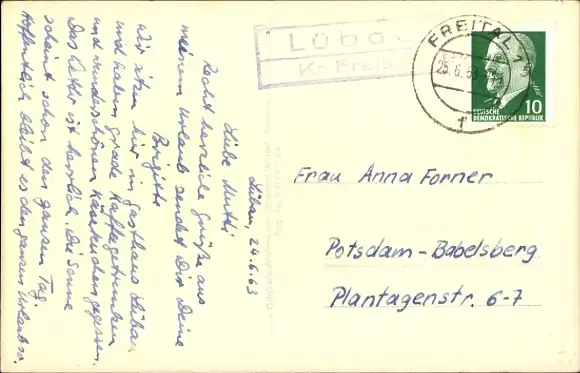 Lübau, 24.6.63
Liebe Mutti
Recht herzliche Grüße aus
meinem Urlaub sendet Dir Deine
Brigitte
Wir sitzen hier im Gasthaus Lübau
und haben grade Kaffee getrunken
und wunderschönen Käsekuchen gegessen.
Das Wetter ist herrlich. Die Sonne
scheint schon den ganzen Tag.
Hoffentlich bleibt es den ganzen Urlaub so.
Lübau
Kr. Freital
FREITAL 1
25.6.63
DEUTSCHE
DEMOKRATISCHE REPUBLIK
10
Frau Anna Forner
Potsdam-Babelsberg
Plantagenstr. 6-7